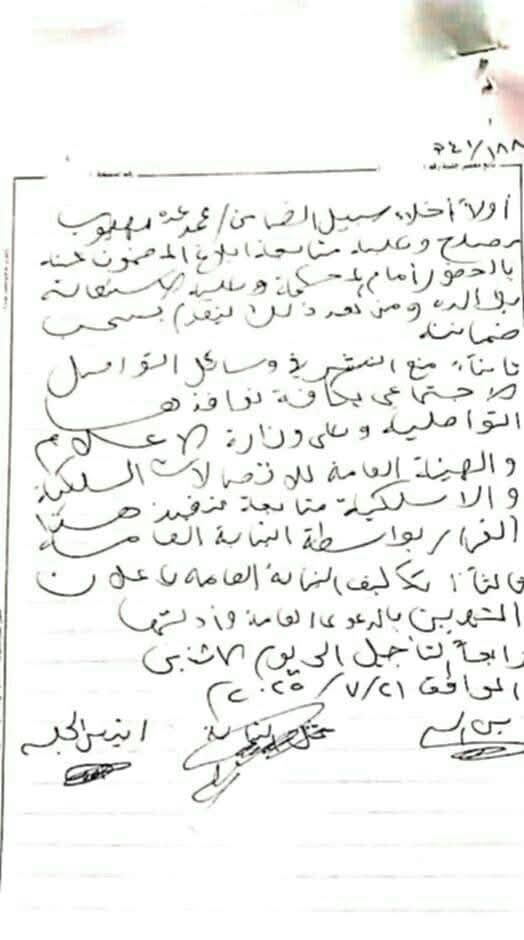 ٧٤١/١٨٨
أولاً اخلاء سبيل الضامن/ محمد عبده مهيوب
مصلح وعليه متابعة ابلاغ المضمون عنه
بالحضور أمام المحكمة وعليه الاستعانة
بوالده ومن بعد ذلك ليتقدم بسحب
ضمانته
ثانياً: منع النشر في وسائل التواصل
الاجتماعي بكافة نوافذها
التواصلية وعلى وزارة الاعلام
والهيئة العامة للاتصالات السلكية
والاسلكية متابعة تنفيذ هذا
القرار بواسطة النيابة العامة
ثالثاً: تكليف النيابة العامة باعلان
المتهمين بالدعوى العامة وأدلتها
رابعاً لتأجيل الى يوم الاثنين
الموافق ٢١/٧/٢٠٢٥م
امين السر ممثل النيابة رئيس الجلسة